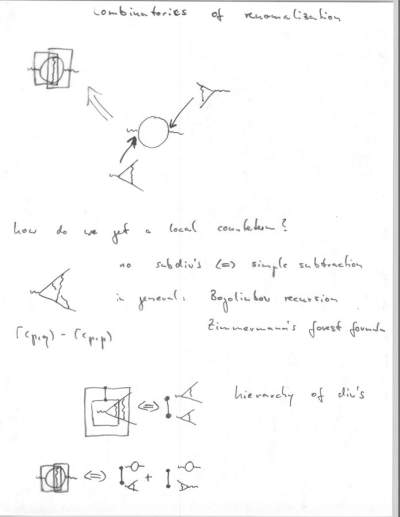 combinatorics of renormalization
how do we get a local counterterm?
no subdiv's <=> simple subtraction
in general: Bogoliubov recursion
Γ(p,q) - Γ(p,p)
Zimmermann's forest formula
<=>
hierarchy of div's
<=> +